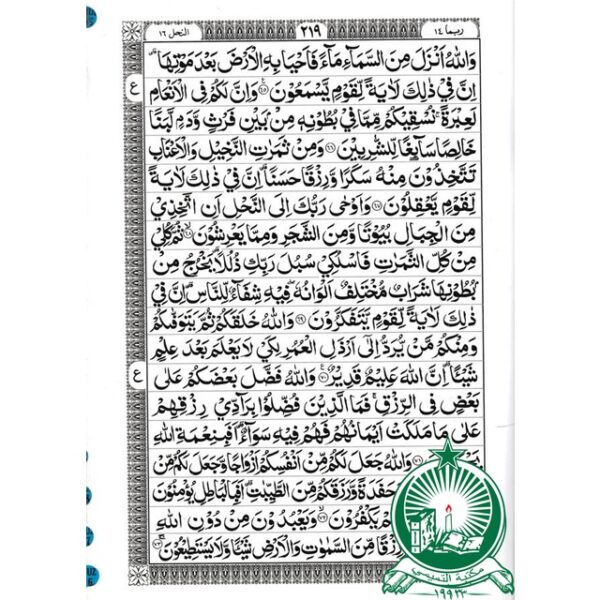 ربما ١٤
٢١٩
النحل ١٦
وَاللّٰهُ اَنْزَلَ مِنَ السَّمَآءِ مَآءً فَاَحْيَا بِهِ الْاَرْضَ بَعْدَ مَوْتِهَا ؕ
اِنَّ فِيْ ذٰلِكَ لَاٰيَةً لِّقَوْمٍ يَّسْمَعُوْنَ ﴿٦٥﴾ وَاِنَّ لَكُمْ فِى الْاَنْعَامِ
ع
لَعِبْرَةً ؕ نُسْقِيْكُمْ مِّمَّا فِيْ بُطُوْنِهٖ مِنْۢ بَيْنِ فَرْثٍ وَّدَمٍ لَّبَنًا
خَالِصًا سَآىِٕغًا لِّلشّٰرِبِيْنَ ﴿٦٦﴾ وَمِنْ ثَمَرٰتِ النَّخِيْلِ وَالْاَعْنَابِ
تَتَّخِذُوْنَ مِنْهُ سَكَرًا وَّرِزْقًا حَسَنًا ؕ اِنَّ فِيْ ذٰلِكَ لَاٰيَةً
لِّقَوْمٍ يَّعْقِلُوْنَ ﴿٦٧﴾ وَاَوْحٰى رَبُّكَ اِلَى النَّحْلِ اَنِ اتَّخِذِيْ
مِنَ الْجِبَالِ بُيُوْتًا وَّمِنَ الشَّجَرِ وَمِمَّا يَعْرِشُوْنَ ﴿٦٨﴾ ثُمَّ كُلِيْ
مِنْ كُلِّ الثَّمَرٰتِ فَاسْلُكِيْ سُبُلَ رَبِّكِ ذُلُلًا ؕ يَخْرُجُ مِنْۢ
بُطُوْنِهَا شَرَابٌ مُّخْتَلِفٌ اَلْوَانُهٗ فِيْهِ شِفَآءٌ لِّلنَّاسِ ؕ اِنَّ فِيْ
ذٰلِكَ لَاٰيَةً لِّقَوْمٍ يَّتَفَكَّرُوْنَ ﴿٦٩﴾ وَاللّٰهُ خَلَقَكُمْ ثُمَّ يَتَوَفّٰىكُمْ
وَمِنْكُمْ مَّنْ يُّرَدُّ اِلٰٓى اَرْذَلِ الْعُمُرِ لِكَيْ لَا يَعْلَمَ بَعْدَ عِلْمٍ
شَيْـًٔا ؕ اِنَّ اللّٰهَ عَلِيْمٌ قَدِيْرٌ ﴿٧٠﴾ وَاللّٰهُ فَضَّلَ بَعْضَكُمْ عَلٰى
ع
بَعْضٍ فِى الرِّزْقِ ۚ فَمَا الَّذِيْنَ فُضِّلُوْا بِرَآدِّيْ رِزْقِهِمْ
عَلٰى مَا مَلَكَتْ اَيْمَانُهُمْ فَهُمْ فِيْهِ سَوَآءٌ ؕ اَفَبِنِعْمَةِ اللّٰهِ
﴿٧١﴾ وَاللّٰهُ جَعَلَ لَكُمْ مِّنْ اَنْفُسِكُمْ اَزْوَاجًا وَّجَعَلَ لَكُمْ مِّنْ
حَفَدَةً وَّرَزَقَكُمْ مِّنَ الطَّيِّبٰتِ ؕ اَفَبِالْبَاطِلِ يُؤْمِنُوْنَ
يَكْفُرُوْنَ ﴿٧٢﴾ وَيَعْبُدُوْنَ مِنْ دُوْنِ اللّٰهِ
رِزْقًا مِّنَ السَّمٰوٰتِ وَالْاَرْضِ شَيْـًٔا وَّلَا يَسْتَطِيْعُوْنَ ﴿٧٣﴾
مكتبة
١٩٢٣